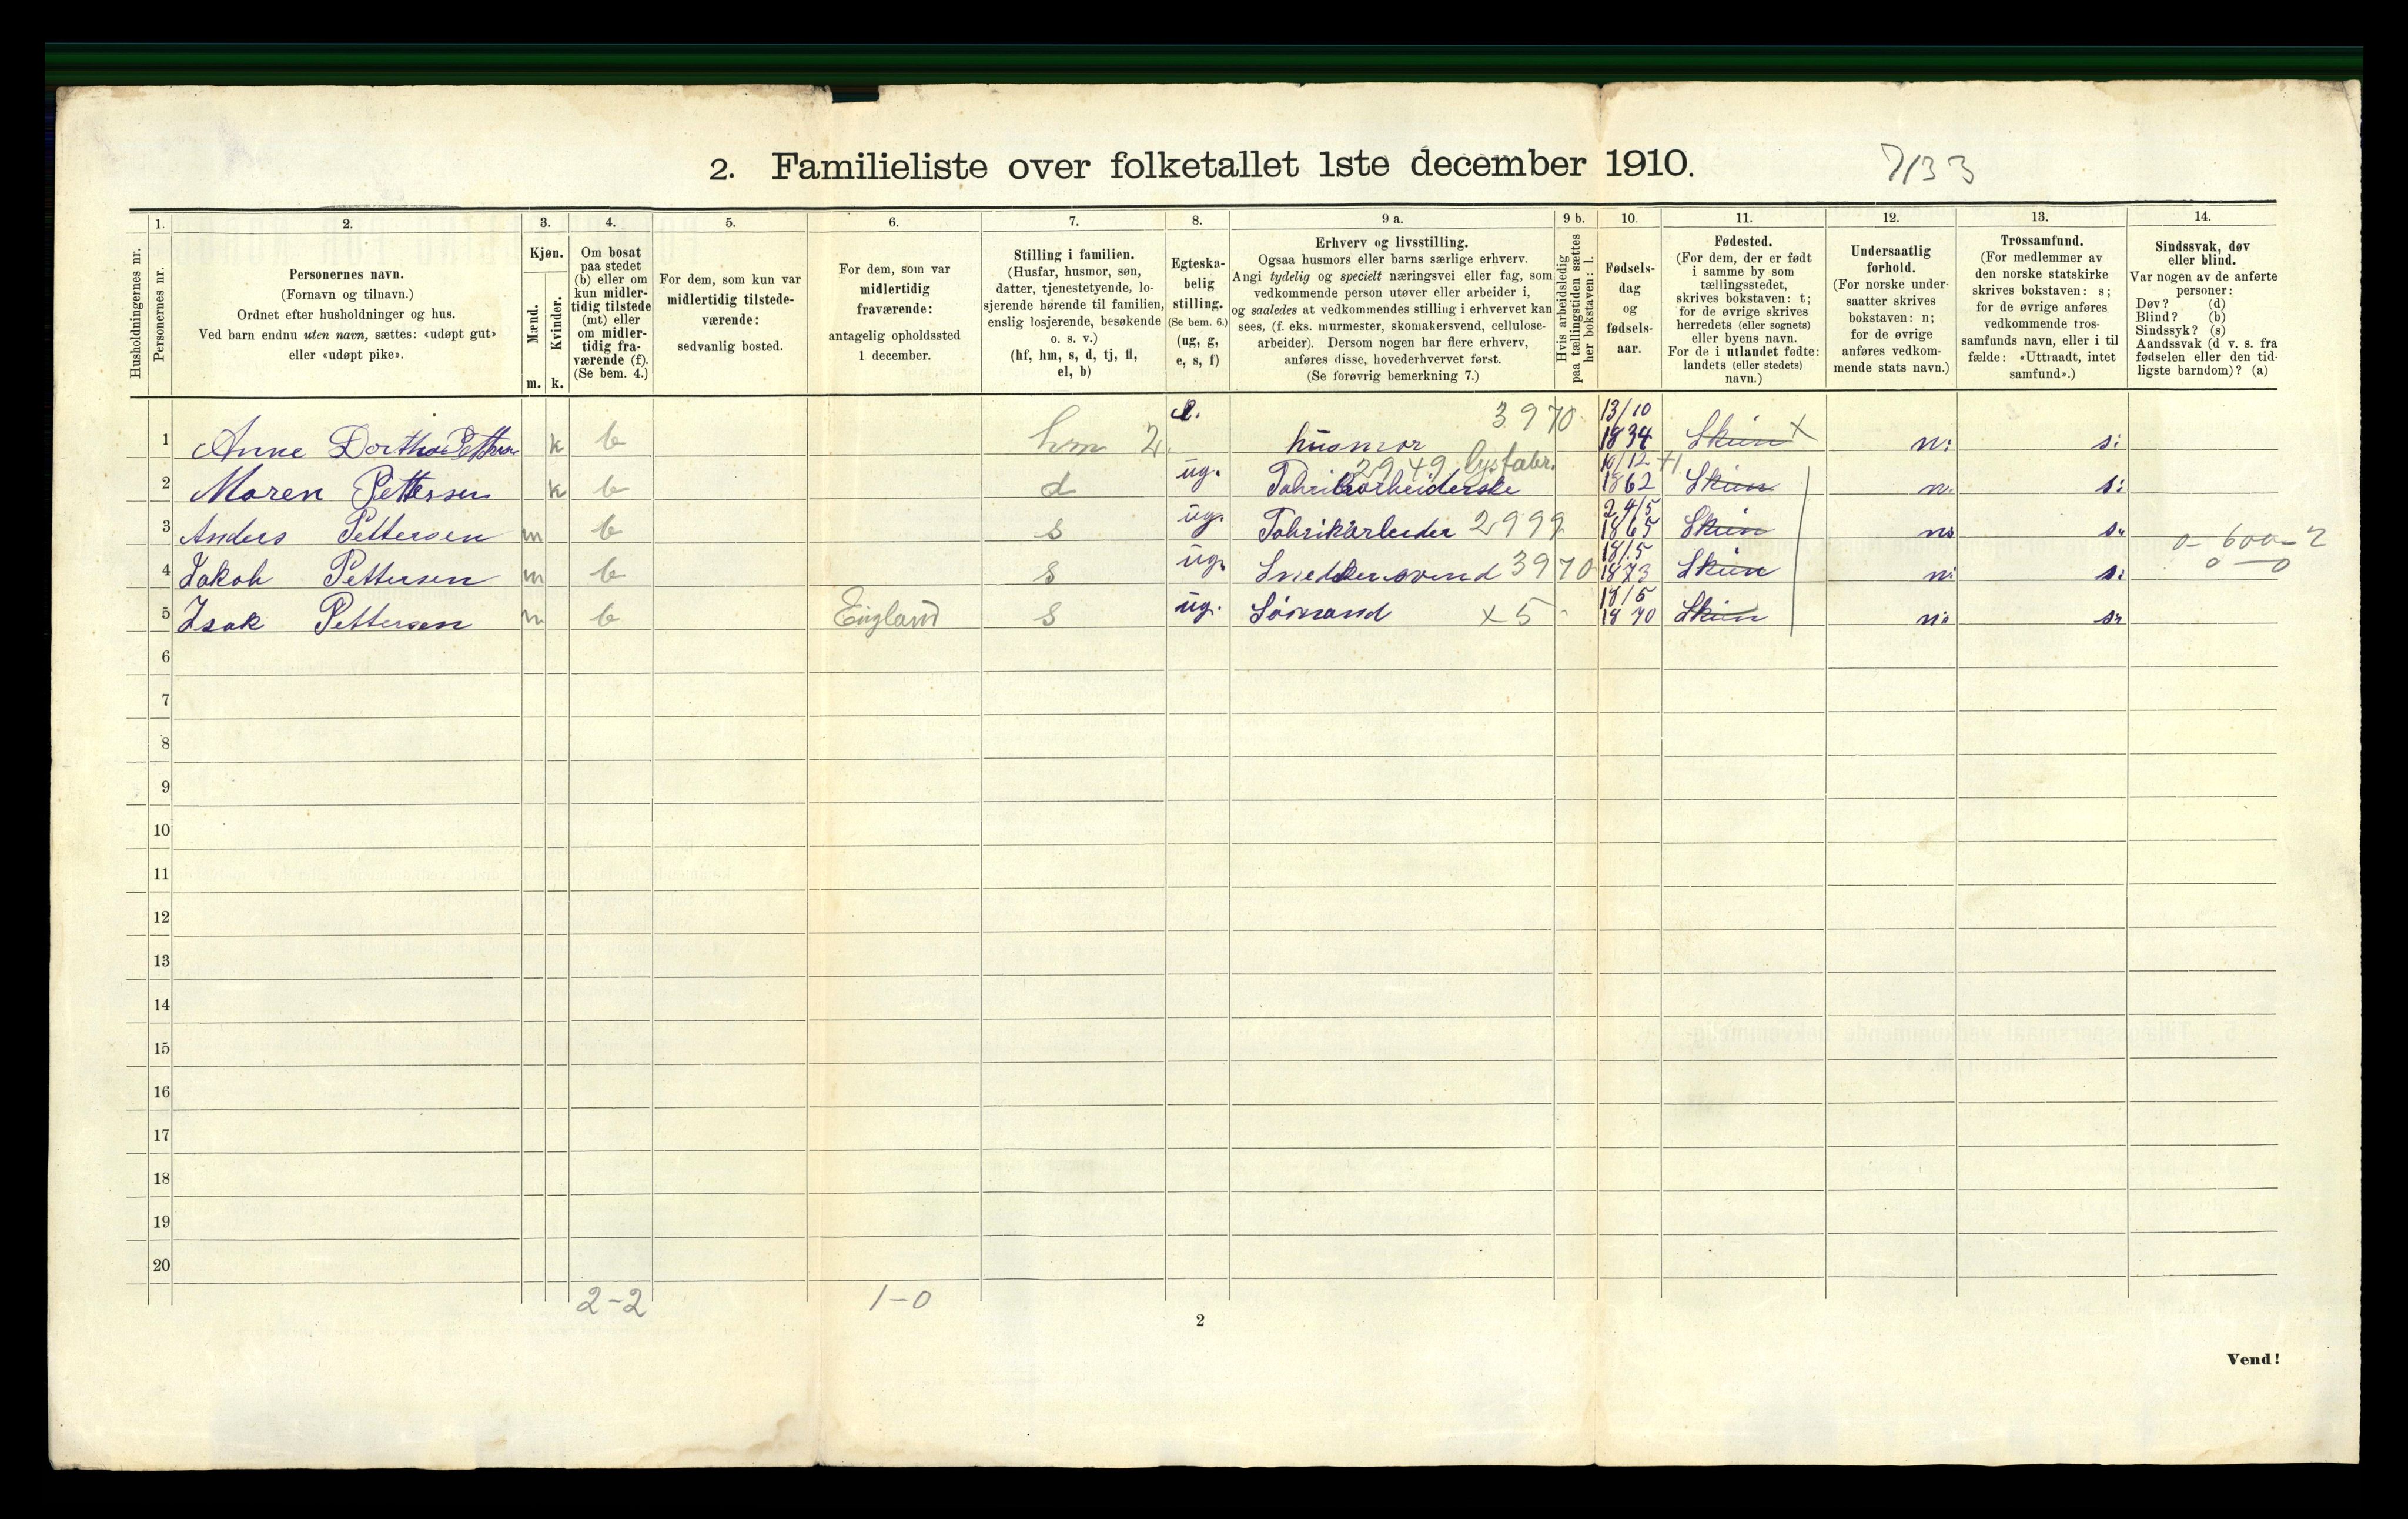 2. Familieliste over folketallet 1ste december 1910.
7133
Husholdningernes nr.
1.
Personernes nr.
2.
Personernes navn.
(Fornavn og tilnavn.)
Ordnet efter husholdninger og hus.
Ved barn endnu uten navn, sættes: «udøpt gut»
eller «udøpt pike».
3.
Kjøn.
Mænd.
Kvinder.
m. k.
4.
Om bosat
paa stedet
(b) eller om
kun midler-
tidig tilstede
(mt) eller
om midler-
tidig fra-
værende (f).
(Se bem. 4.)
5.
For dem, som kun var
midlertidig tilstede-
værende:
sedvanlig bosted.
6.
For dem, som var
midlertidig
fraværende:
antagelig opholdssted
1 december.
7.
Stilling i familien.
(Husfar, husmor, søn,
datter, tjenestetyende, lo-
sjerende hørende til familien,
enslig losjerende, besøkende
o. s. v.)
(hf, hm, s, d, tj, fl,
el, b)
8.
Egteska-
belig
stilling.
(Se bem. 6.)
(ug, g,
e, s, f)
9 a.
Erhverv og livsstilling.
Ogsaa husmors eller barns særlige erhverv.
Angi tydelig og specielt næringsvei eller fag, som
vedkommende person utøver eller arbeider i,
og saaledes at vedkommendes stilling i erhvervet kan
sees, (f. eks. murmester, skomakersvend, cellulose-
arbeider). Dersom nogen har flere erhverv,
anføres disse, hovederhvervet først.
(Se forøvrig bemerkning 7.)
9 b.
Hvis arbeidsledig
paa tællingstiden sættes
her bokstaven: l.
10.
Fødsels-
dag
og
fødsels-
aar.
11.
Fødested.
(For dem, der er født
i samme by som
tællingsstedet,
skrives bokstaven: t;
for de øvrige skrives
herredets (eller sognets)
eller byens navn.
For de i utlandet fødte:
landets (eller stedets)
navn.)
12.
Undersaatlig
forhold.
(For norske under-
saatter skrives
bokstaven: n;
for de øvrige
anføres vedkom-
mende stats navn.)
13.
Trossamfund.
(For medlemmer av
den norske statskirke
skrives bokstaven: s;
for de øvrige anføres
vedkommende tros-
samfunds navn, eller i til
fælde: «Uttraadt, intet
samfund».)
14.
Sindssvak, døv
eller blind.
Var nogen av de anførte
personer:
Døv? (d)
Blind? (b)
Sindssyk? (s)
Aandssvak (d v. s. fra
fødselen eller den tid-
ligste barndom)? (a)
1 Anne Dorthea Pettersen k b hm 2 e. husmor 3970 13/10 1834 Skien x n: s:
2 Maren Pettersen k b d ug. Fabrikarbeiderske 2949 lysfabr. 10/12 1862 Skien n. s:
3 Anders Pettersen m b s ug. Fabrikarbeider 2999 24/5 1865 Skien n. s.
4 Jakob Pettersen m b s ug. Snedkersvend 3970 18/5 1873 Skien n: s: 0-600-2
5 Isak Pettersen m b England s ug. Sömand x 5 18/5 1870 Skien n: s:
6
7
8
9
10
11
12
13
14
15
16
17
18
19
20
2-2 1-0
2
Vend!